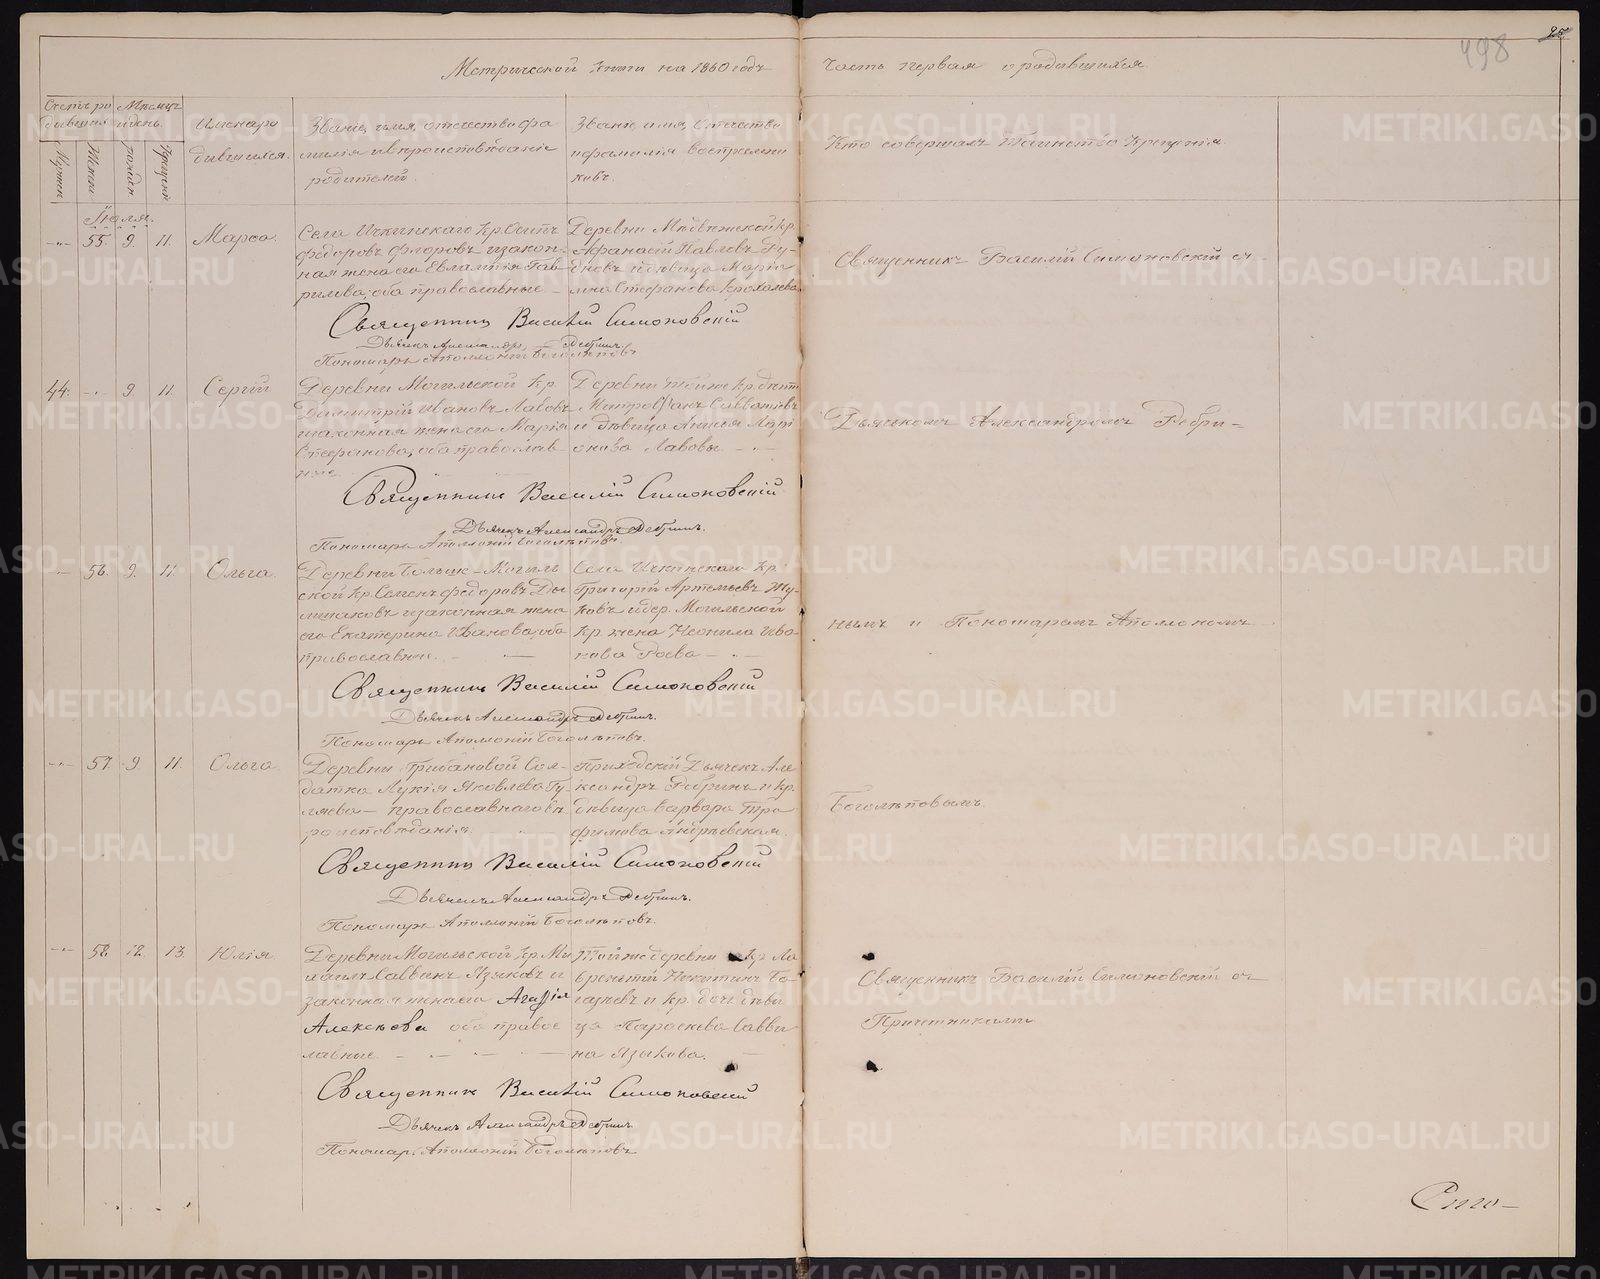 Метрической книги на 1860 годъ
часть первая о родившихся
498
25
Счетъ ро
дившихся
Мѣсяцъ
и день.
Имена ро
дившихся.
Званіе, имя, отчество и фа
милія и вѣроисповѣданіе
родителей.
Званіе, имя, отчество
и фамилія воспріемни
ковъ.
Кто совершалъ Таинство Крещенія.
Мужеска
Женска
рожден.
Крещенія
Іюля.
55. 9. 11. Марѳа.
Села Ичкинскаго Кр. Осипъ
Федоровъ Флоровъ и закон-
ная жена его Евлампія Гав
рилова, оба православные
Деревни Медвѣжской кр.
Афанасій Павловъ Ру-
дновъ и дѣвица Марѳа
Стефанова Крохалева.
Священникъ Василій Симоновскій съ
Священникъ Василій Симоновскій
Дьячекъ Александръ Ребринъ.
Пономарь Аполлоній Боголѣповъ
44. 9. 11. Сергій
Деревни Могильской Кр.
Димитрій Ивановъ Лавовъ
и законная жена его Марія
Стефанова, оба православ-
ные
Деревни той же кр.
Митрофанъ Савватіевъ
и дѣвица Анисья Лари
онова Лавовы
Дьячкомъ Александромъ Ребри-
Священникъ Василій Симоновскій
Дьячекъ Александръ Ребринъ.
Пономарь Аполлоній Боголѣповъ
56. 9. 11. Ольга.
Деревни Больше-Могиль
ской Кр. Семенъ Федоровъ
и законная жена
его Екатерина Иванова, оба
православные.
Села Ичкинскаго Кр.
Григорій Артемьевъ Жу-
ковъ и дер. Могильской
Кр. жена Неонила Ива
нова Роева
нымъ и Пономаремъ Аполлономъ
Священникъ Василій Симоновскій
Дьячекъ Александръ Ребринъ.
Пономарь Аполлоній Боголѣповъ.
57. 9 11. Ольга.
Деревни Грибановой Сол-
датка Лукія Яковлева Гу-
ляева православнаго вѣ
роисповѣданія.
Приходскій Дьячекъ Але
ксандръ Ребринъ и Кр.
дѣвица Варвара Тро
фимова Андреевская.
Боголѣповымъ.
Священникъ Василій Симоновскій
Дьячекъ Александръ Ребринъ.
Пономарь Аполлоній Боголѣповъ.
58. 12. 13. Юлія.
Деревни Могильской Кр. Ми
хаилъ Саввинъ Язяковъ и
законная жена его Агафія
Алексѣева оба правос
лавные.
Той же деревни Кр. Ла
врентій Никитинъ Бо
гачевъ и кр. дочь дѣви
ца Параскева Савви
на Языкова.
Священникъ Василій Симоновскій съ
Причетниками
Священникъ Василій Симоновскій
Дьячекъ Александръ Ребринъ
Пономарь Аполлоній Боголѣповъ
METRIKI.GASO-URAL.RU